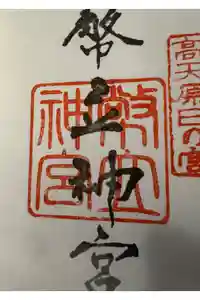 高天原日乃宮
幣立神宮
幣立
神宮